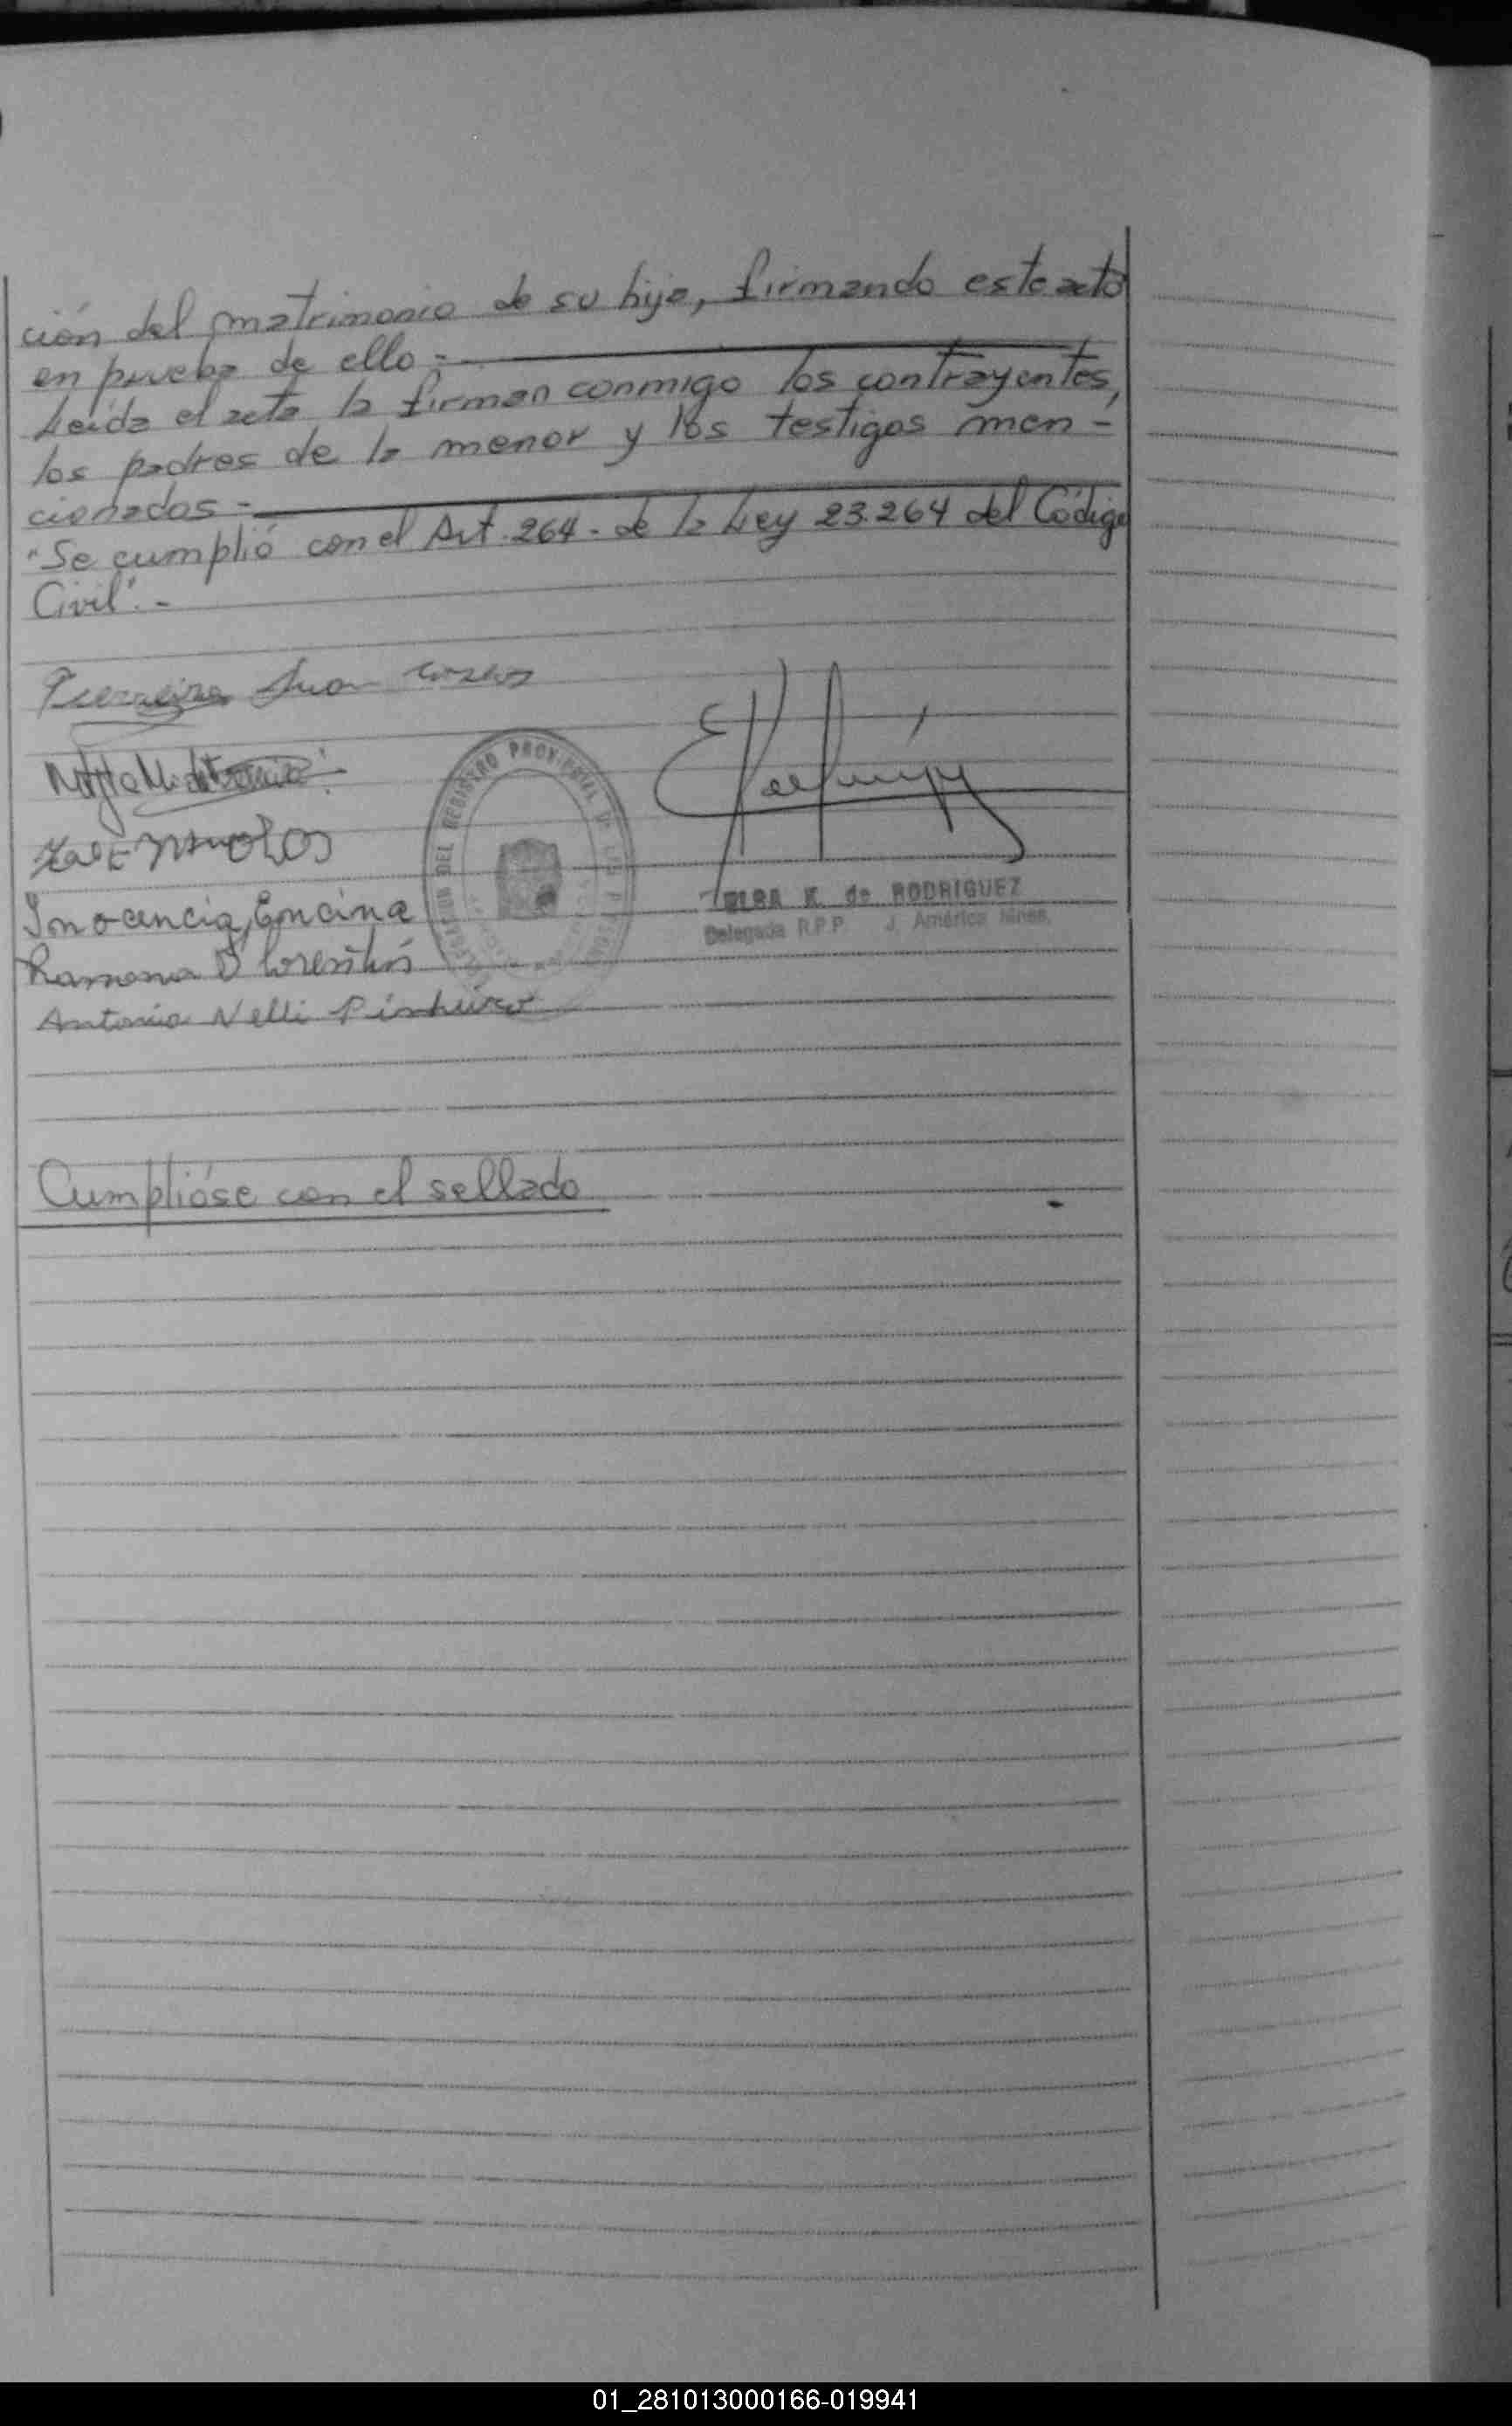 ción del matrimonio de su hija, firmando este acto
en prueba de ello.-
Leída el acta la firman conmigo los contrayentes,
los padres de la menor y los testigos men-
cionados.-
"Se cumplió con el Art. 264.- de la Ley 23.264 del Código
Civil".-
Ferreira Juan Carlos
Inocencia Encina
Ramona D Florentín
Antonia Nelli Pinheiro
DELEGACION DEL REGISTRO PROVINCIAL DE LAS PERSONAS
ELSA K. de RODRIGUEZ
Delegada R.P.P. J. América Mnes.
Cumplióse con el sellado
01_281013000166-019941